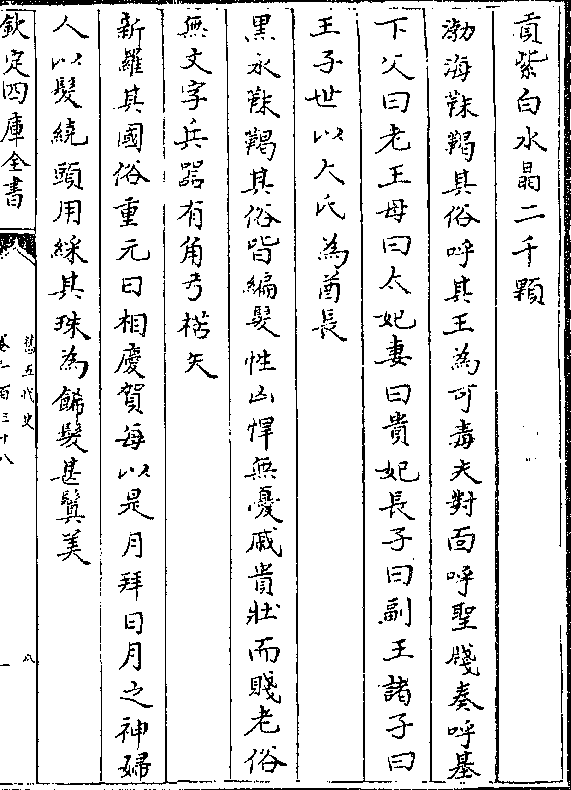 貢紫白水晶二千顆
渤海靺鞨其俗呼其王為可毒夫對面呼聖牋奏呼基
下父曰老王母曰太妃妻曰貴妃長子曰副王諸子曰
王子世以大氏為酋長
黑水靺鞨其俗皆編髮性凶悍無憂戚貴壯而賤老俗
無文字兵器有角弓楛矢
新羅其國俗重元日相慶賀每以是月拜日月之神婦
人以髮繞頭用綵其珠為餙髮甚鬒美
欽定四庫全書
舊五代史
卷一百三十八
八